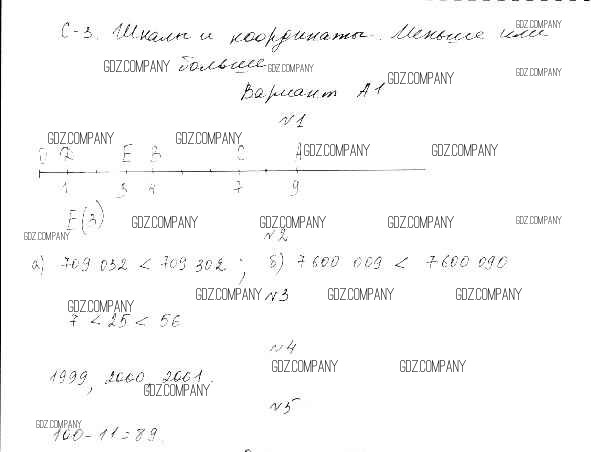 С-3. Шкалы и координаты. Меньше или GDZ.COMPANY
GDZ.COMPANY больше GDZ.COMPANY GDZ.COMPANY
GDZ.COMPANY
Вариант А1
№1
GDZ.COMPANY GDZ.COMPANY
O E B C A GDZ.COMPANY GDZ.COMPANY
1 3 4 7 9
E(3) GDZ.COMPANY GDZ.COMPANY GDZ.COMPANY GDZ.COMPANY
GDZ.COMPANY №2
а) 709 032 < 709 302 ; б) 7 600 009 < 7 600 090
GDZ.COMPANY №3 GDZ.COMPANY GDZ.COMPANY
GDZ.COMPANY
7 < 25 < 56
№4
GDZ.COMPANY GDZ.COMPANY
1999, 2000, 2001.
GDZ.COMPANY
№5
GDZ.COMPANY
100-11=89.